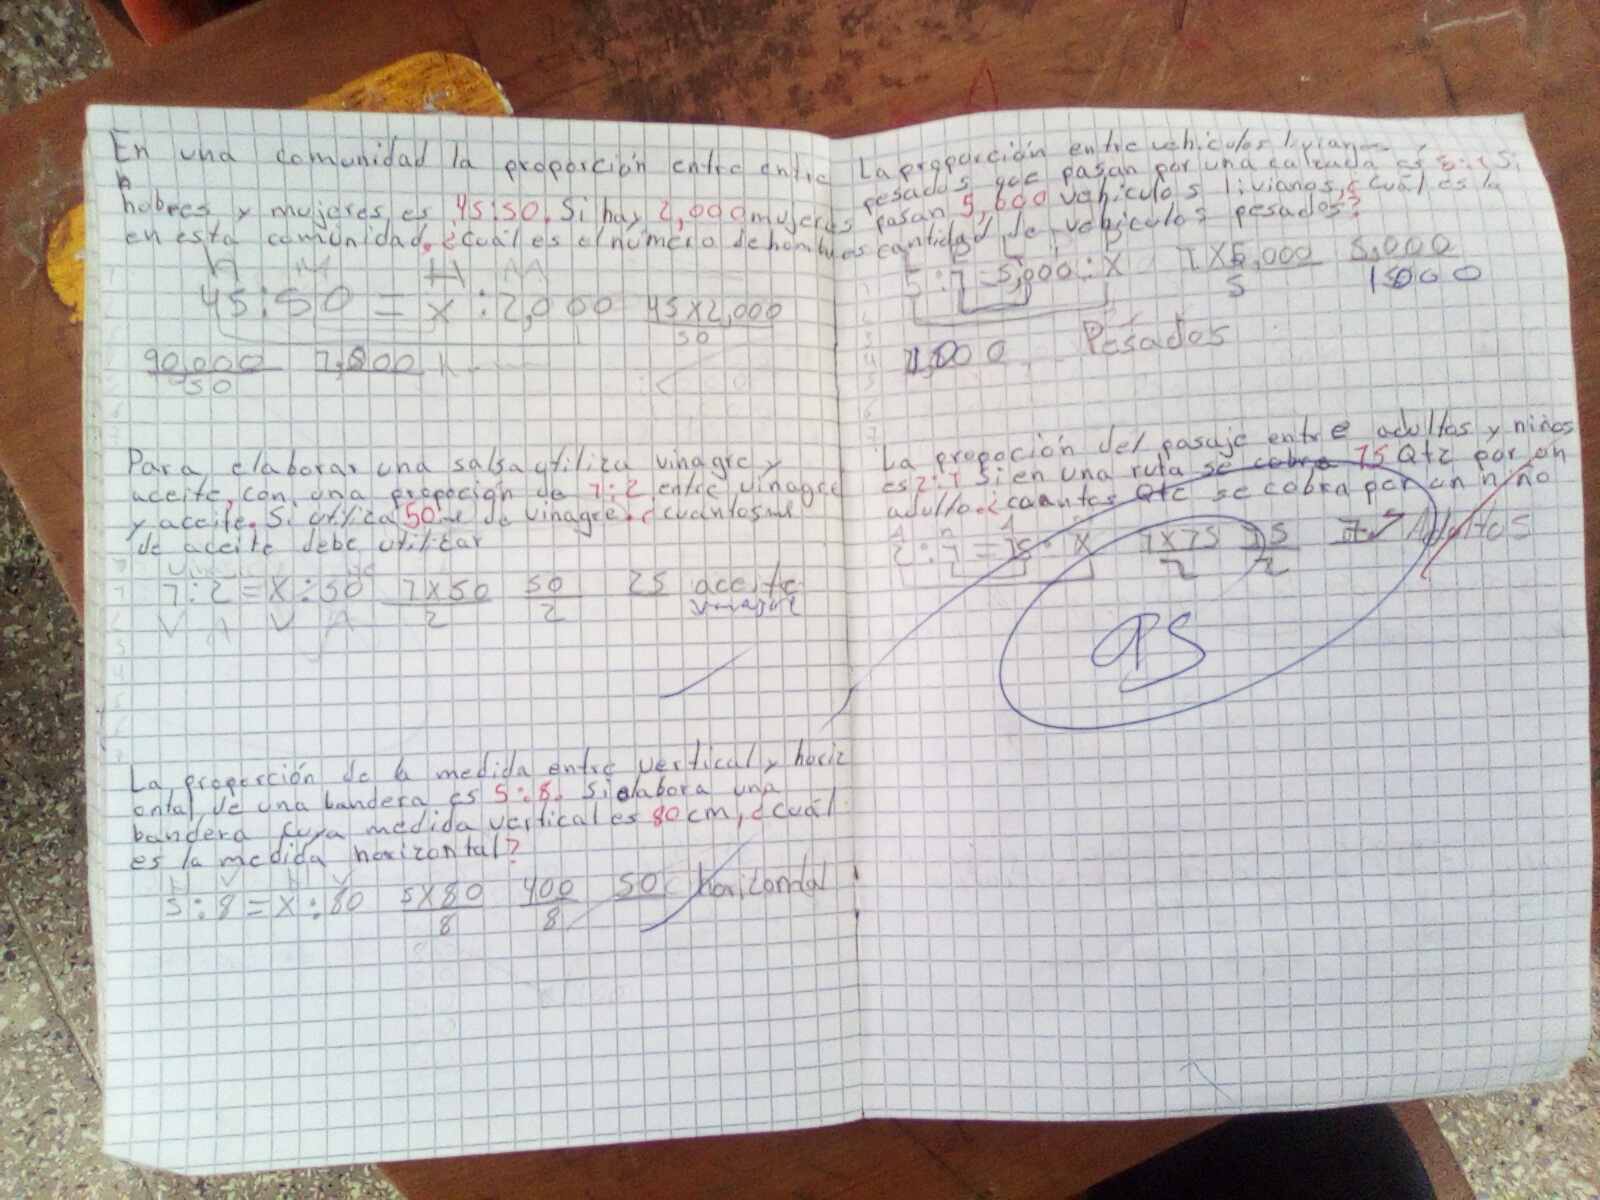 En una comunidad la proporción entre entre
hobres y mujeres es 45:50. Si hay 2,000 mujeres
en esta comunidad. ¿cuál es el número de hombres
H M H M
45:50 = x : 2,000 45x2,000
50
90,000
50
Para elaborar una salsa utiliza vinagre y
aceite, con una propoción de 1:2 entre vinagre
y aceite. Si utiliza 50 de vinagre. ¿cuantos
de aceite debe utilizar
1:2 = x : 50 1x50 50 25 aceite
2 2 vinagre
V A V A
La proporción de la medida entre vertical y horiz
ontal de una bandera es 5:8. Si elabora una
bandera cuya medida vertical es 80 cm, ¿cuál
es la medida horizontal?
5:8 = x : 80 5x80 400 50 horizondal
8 8
La proporción entre vehiculos livianos
pesados que pasan por una calzada es 5:1 Si
pasan 5,000 vehículos livianos, ¿cuál es la
cantidad de vehiculos pesados?
5:1 = 5,000 : x 1x5,000 5,000
5 1000
1,000 Pesados
La propoción del pasaje entre adultos y niños
es 2:1 Si en una ruta se cobra 15 Qtz por un
adulto. ¿cuantos Qtz se cobra por un niño
A n A
2:1 = 15 : x 1x15 15 Adultos
2 2
95